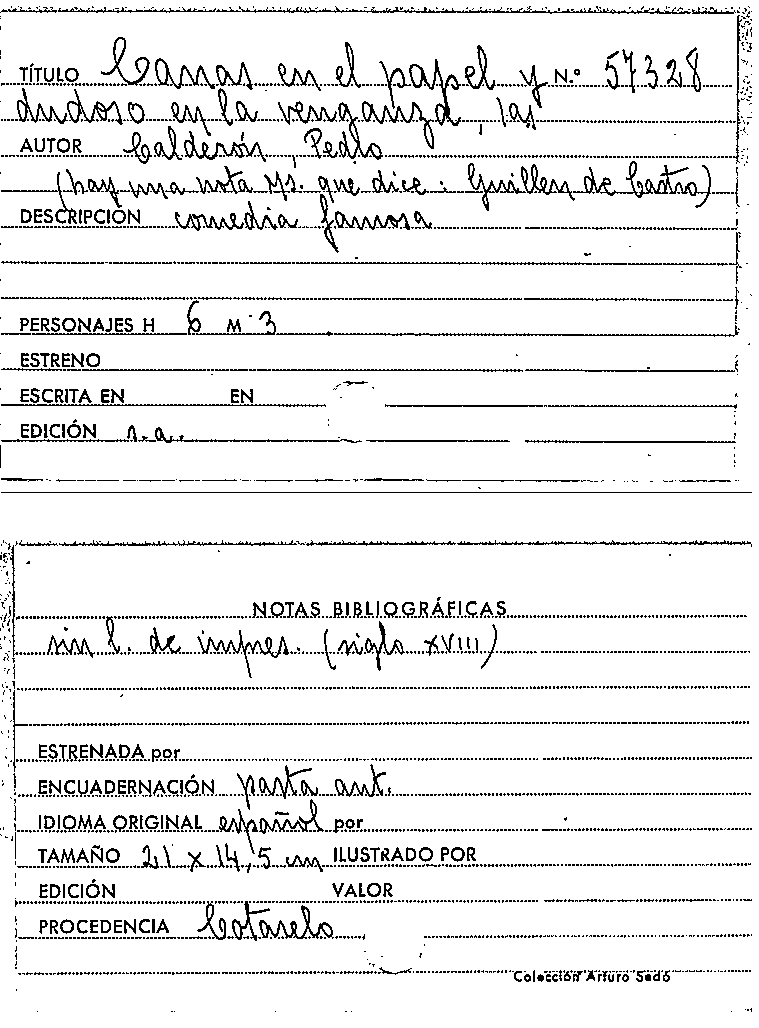 TÍTULO Canas en el papel y N.º 57328
dudoso en la venganza, las
AUTOR Calderón, Pedro
(hay una nota Ms. que dice: Guillen de Castro)
DESCRIPCIÓN comedia famosa
PERSONAJES H 6 M 3
ESTRENO
ESCRITA EN EN
EDICIÓN s.a.
NOTAS BIBLIOGRÁFICAS
sin l. de impres. (siglo XVIII)
ESTRENADA por
ENCUADERNACIÓN pasta ant.
IDIOMA ORIGINAL español por
TAMAÑO 21 x 14,5 cm ILUSTRADO POR
EDICIÓN VALOR
PROCEDENCIA Cotarelo
Colección Arturo Sedó